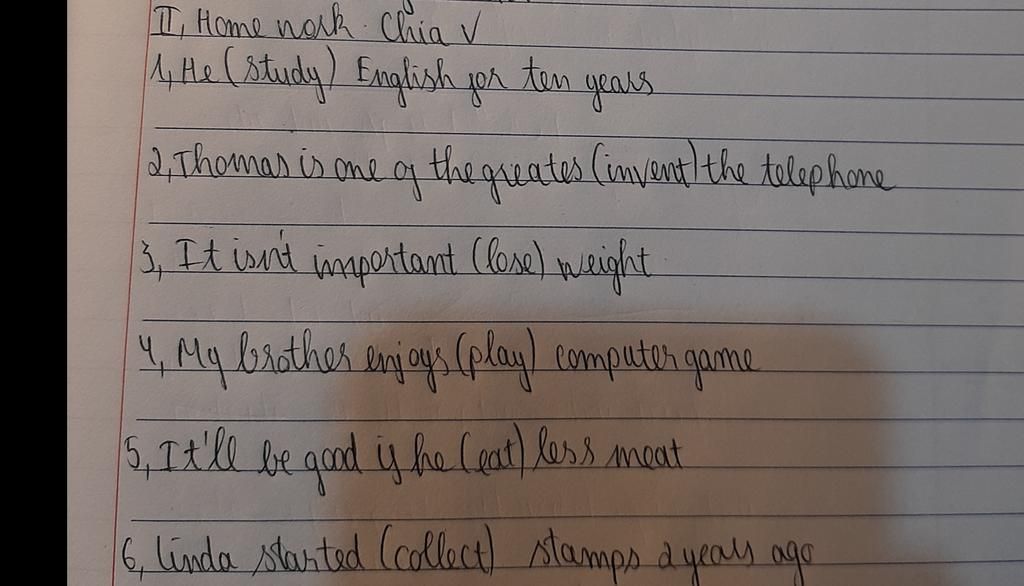 II, Home work. Chia V
1, He (study) English for ten years
2, Thomas is one of the greates (invent) the telephone
3, It isn't important (lose) weight
4, My brother enjoys (play) computer game
5, It'll be good if he (eat) less meat
6, Linda started (collect) stamps 2 years ago